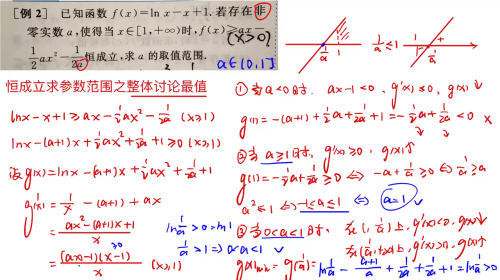 【例2】已知函数 f(x)=ln x-x+1, 若存在非
零实数 a, 使得当 x∈[1,+∞)时, f(x)≥ax-
(x>0)
1/2 ax²-1/2a 恒成立, 求 a 的取值范围.
a∈(0,1]
恒成立求参数范围之整体讨论最值
lnx-x+1≥ax-1/2ax²-1/2a (x≥1)
lnx-(a+1)x+1/2ax²+1/2a+1≥0 (x≥1)
设 g(x)=lnx-(a+1)x+1/2ax²+1/2a+1
g'(x)=1/x-(a+1)+ax
=(ax²-(a+1)x+1)/x
=(ax-1)(x-1)/x (x≥1)
≥0
ln1/a>0=ln1
1/a>1⇒0<a<1 √
1/a 1
1/a≤1
1 1/a
- +
①当a<0时, ax-1<0, g'(x)≤0, g(x)↓
g(1)=-(a+1)+1/2a+1/2a+1=-1/2a+1/2a<0 ×
②当a≥1时, g'(x)≥0, g(x)↑
g(1)=-1/2a+1/2a≥0⇔-a+1/a≥0⇔1/a≥a
a²≤1⇔-1≤a≤1⇔a=1 √
③当0<a<1时, 在(1,1/a)上, g'(x)<0, g(x)↓
在(1/a,+∞)上, g'(x)>0, g(x)↑
g(x)min=g(1/a)=ln1/a-(a+1)/a+1/2a+1/2a+1=ln1/a